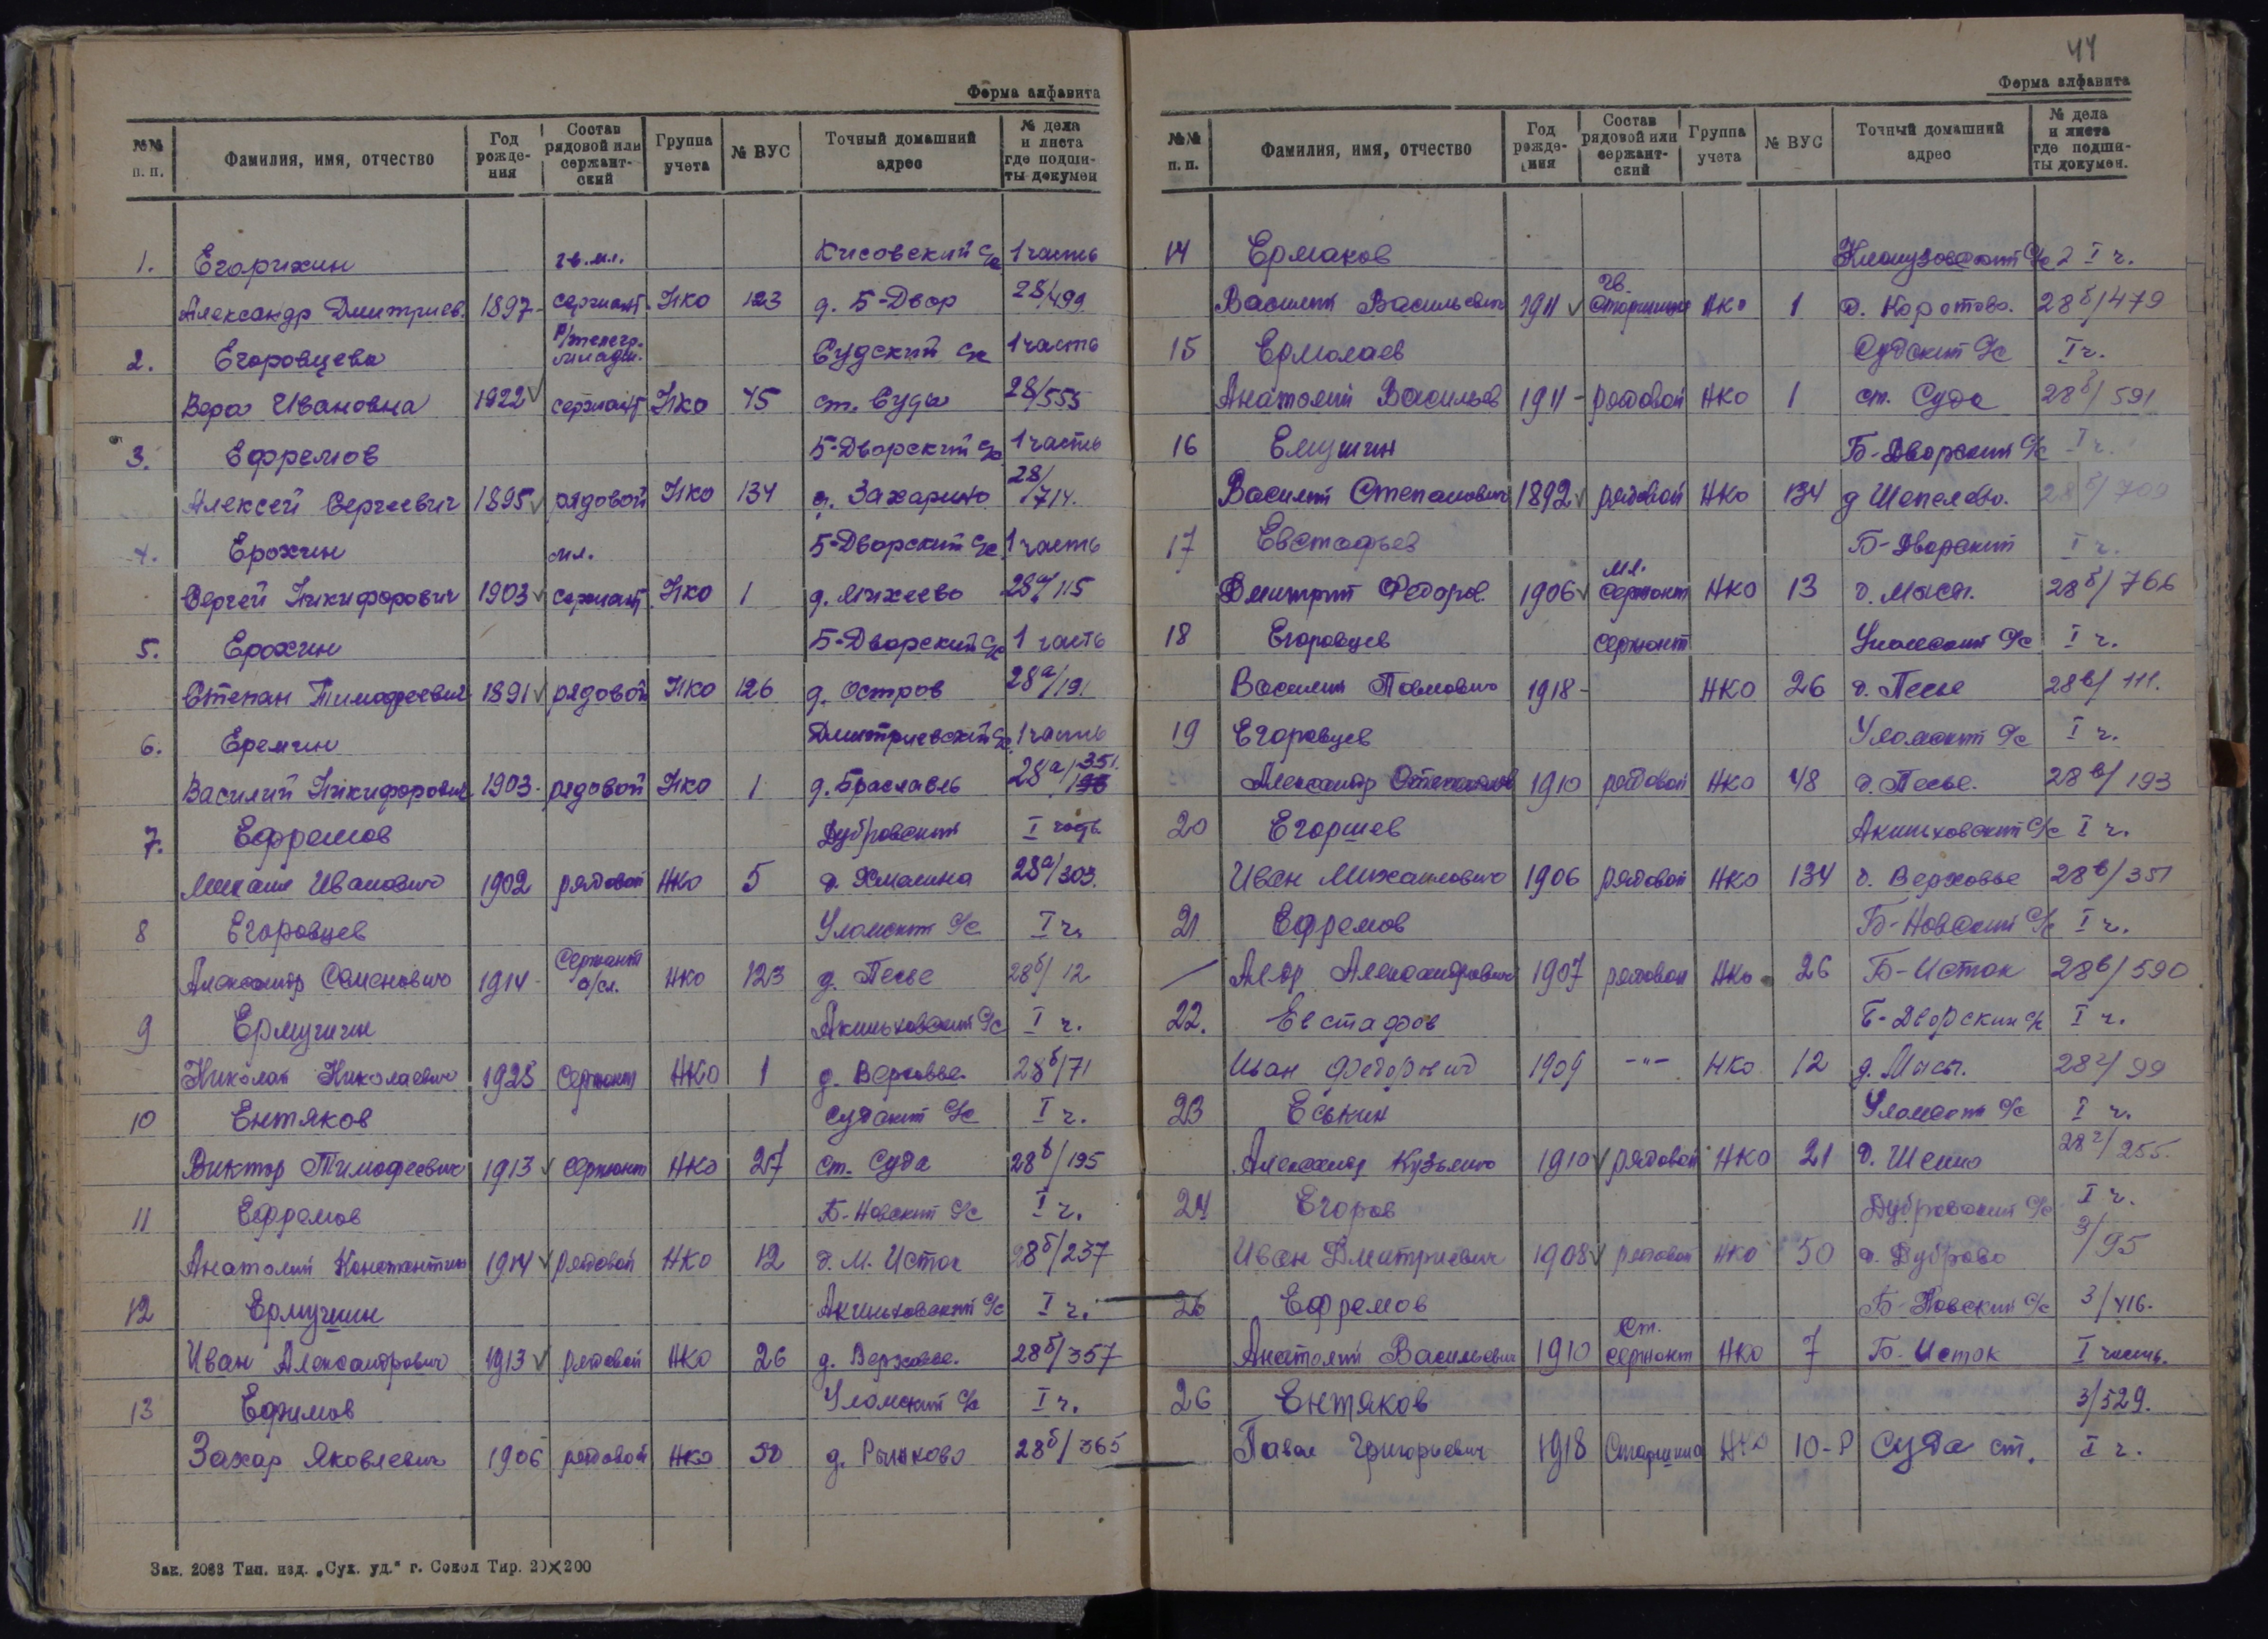 Форма алфавита
№№ п. п. Фамилия, имя, отчество Год рожде-ния Состав рядовой или сержант-ский Группа учета № ВУС Точный домашний адрес № дела и листа где подши-ты докумен
1. Егорихин гв. мл. Кисовский с/с 1 часть
Александр Дмитриев. 1897- сержант НКО 123 д. Б-Двор 28/499
2. Егоровцева р/телегр. младш. Судский с/с 1 часть
Вера Ивановна 1922 сержант НКО 45 ст. Суда 28/555
3. Ефремов Б-Дворский с/с 1 часть
Алексей Сергеевич 1895 рядовой НКО 134 д. Захарино 28/714.
4. Ерохин мл. Б-Дворский с/с 1 часть
Сергей Никифорович 1903 сержант НКО 1 д. Михеево 28а/115
5. Ерохин Б-Дворский с/с 1 часть
Степан Тимофеевич 1891 рядовой НКО 126 д. Остров 28а/191
6. Еремин Дмитриевский с/с 1 часть
Василий Никифорович 1903- рядовой НКО 1 д. Браславль 28а/351.
7. Ефремов Дубровский I часть
Михаил Иванович 1902 рядовой НКО 5 д. Хмелина 28а/303.
8 Егоровцев Уломский с/с I ч.
Александр Семенович 1914- Сержант с/сл. НКО 123 д. Песье 28б/12
9 Ермушин Акиньховский с/с I ч.
Николай Николаевич 1925 Сержант НКО 1 д. Верховье 28б/71
10 Ентяков Судский с/с I ч.
Виктор Тимофеевич 1913 сержант НКО 27 ст. Суда 28б/195
11 Ефремов Б-Новский с/с I ч.
Анатолий Константин 1914 рядовой НКО 12 д. М. Исток 28б/237
12 Ермушин Акиньховский с/с I ч.
Иван Александрович 1913 рядовой НКО 26 д. Верховье. 28б/357
13 Ефимов Уломский с/с I ч.
Захар Яковлевич 1906 рядовой НКО 50 д. Рыньково 28б/365
Зак. 2083 Тип. изд. „Сух. уд.“ г. Сокол Тир. 20×200
44
Форма алфавита
№№ п. п. Фамилия, имя, отчество Год рожде-ния Состав рядовой или сержант-ский Группа учета № ВУС Точный домашний адрес № дела и листа где подши-ты докумен.
14 Ермаков с/с 2 I ч.
Василий Васильевич 1911 гв. Старшина НКО 1 д. Коротово. 28б/479
15 Ермолаев Судский с/с I ч.
Анатолий Васильев 1911- рядовой НКО 1 ст. Суда 28б/591
16 Емушин Б-Дворский с/с I ч.
Василий Степанович 1892 рядовой НКО 134 д Шепелево. 28б/709
17 Евстафьев Б-Дворский I ч.
Дмитрий Федоров. 1906 мл. Сержант НКО 13 д. Мыся. 28б/766
18 Егоровцев сержант Уломский с/с I ч.
Василий Павлович 1918- НКО 26 д. Песье 28в/111.
19 Егоровцев Уломский с/с I ч.
Александр Степанов 1910 рядовой НКО 48 д. Песье. 28в/193
20 Егоршев Акиньховский с/с I ч.
Иван Михаилович 1906 рядовой НКО 134 д. Верховье 28в/351
21 Ефремов Б-Новский с/с I ч.
Александрович 1907 рядовой НКО 26 Б-Исток 28в/590
22. Евстафов Б-Дворский с/с I ч.
Иван Федорович 1909 -"- НКО 12 д. Мысы. 28г/99
23 Еськин Уломский с/с I ч.
Александр Кузьмич 1910 рядовой НКО 21 д. 28г/255.
24 Егоров Дубровский с/с I ч.
Иван Дмитриевич 1908 рядовой НКО 50 д. Дуброво 3/95
26 Ефремов Б-Новский с/с 3/416.
Анатолий Васильевич 1910 Ст. сержант НКО 7 Б-Исток I часть.
26 Ентяков 3/529.
Павел Григорьевич 1918 Старшина НКО 10-Р Суда ст. I ч.